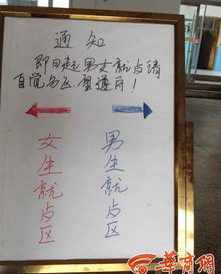 通知
即日起男女就歺请
自觉分区 望遵守!
女生就歺区
男生就歺区
华商网